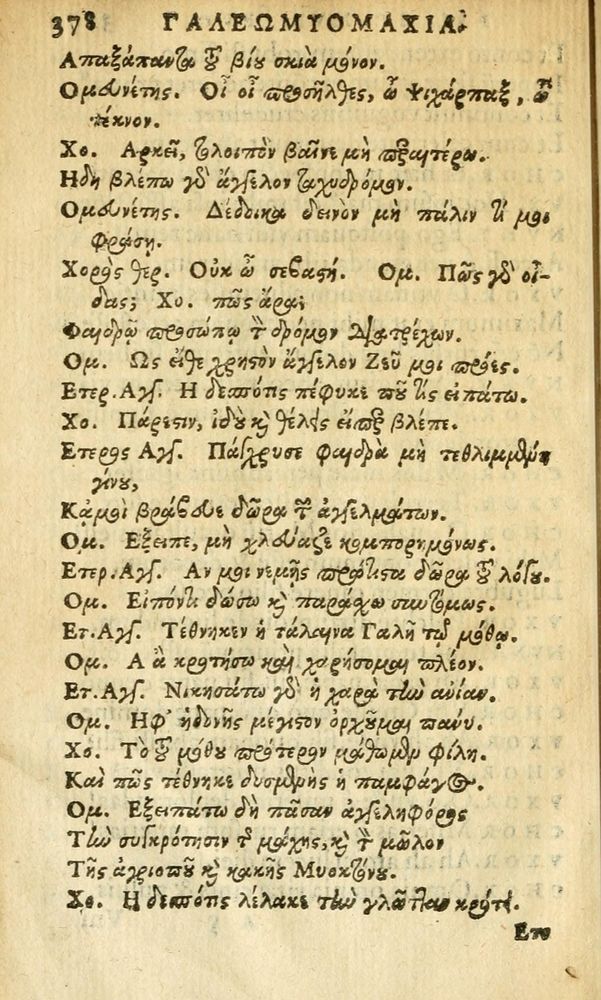 378 ΓΑΛΕΩΜΥΟΜΑΧΙΑ.
Απαξάπαντα τοῦ βίου σκιὰ μόνον.
Ομευνέτης. Οἲ οἲ προσῆλθες, ὦ Ψιχάρπαξ, ὦ
τέκνον.
Χο. Αρκεῖ, τολοιπὸν βαῖνε μὴ πϱαιτέρω.
Ηδη βλέπω γδ ἄγγελον ταχυδρόμον.
Ομευνέτης. Δέδοικα δεινὸν μὴ πάλιν τί μοι
φράσῃ.
Χορὸς θερ. Οὐκ ὦ σεβαστή. Ομ. Πῶς γδ οἶ-
δας; Χο. πῶς ἄρα;
Φαιδρῷ προσώπῳ τὸν δρόμον διατρέχων.
Ομ. Ως εἴθε χρηστὸν ἄγγελον Ζεῦ μοι πρόες.
Ετερ. Αγγ. Η δεσπότις πέφυκε ποῦ τὶς εἰπάτω.
Χο. Πάρεστιν, ἰδοὺ καὶ θέλεις εἴπερ βλέπε.
Ετερος Αγγ. Πάγχρυσε φαιδρὰ μὴ τεθλιμμένη
γίνου,
Κἀμοὶ βράβευε δῶρα τῶν ἀγγελμάτων.
Ομ. Εξειπε, μὴ χλεύαζε κομπορρημόνως.
Ετερ. Αγγ. Αν μοι νεμῇς πράτιστα δῶρα τοῦ λόγου.
Ομ. Εἰπόντι δώσω καὶ παράσχω συντόμως.
Ετ. Αγγ. Τέθνηκεν ἡ τάλαινα Γαλῆ τῷ μόθῳ.
Ομ. Α ἃ κροτήσω καὶ χαρήσομαι πλέον.
Ετ. Αγγ. Νικησάτω γδ ἡ χαρὰ τὴν ἀνίαν.
Ομ. Ηφ' ἡδονῆς μέγιστον ὀρχοῦμαι πάνυ.
Χο. Τὸ τοῦ μόθου πρότερον μάθωμεν φίλη.
Καὶ πῶς τέθνηκε δυσμενὴς ἡ παμφάγος.
Ομ. Εξειπάτω δὴ πᾶσαν ἀγγεληφόρος
Τὴν συγκρότησιν τῆς μάχης, καὶ τὸν μῶλον
Τῆς ἀγριωποῦ καὶ κακῆς Μυοκτόνου.
Χο. Η δεσπότις λέλακε τὴν γλῶτταν κρότει.